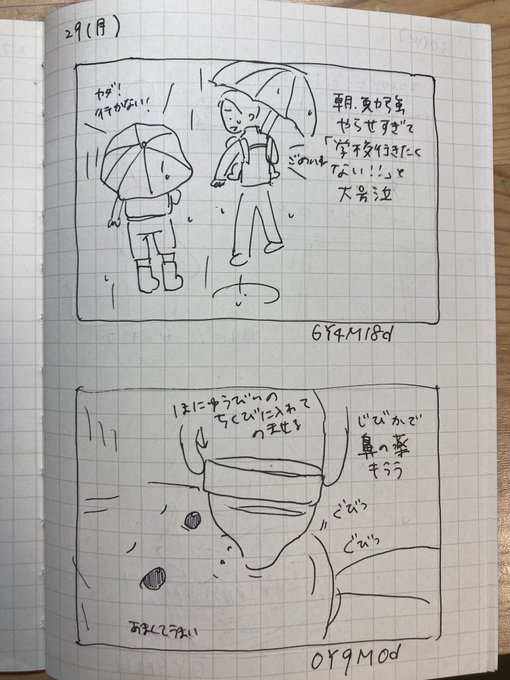 29(月)
ヤダ!
行かない!
朝、勉強
やらせすぎて
「学校行きたく
ない!!」と
大号泣
ごめいね
6Y4M18d
ほにゅうびんの
ちくびに入れて
のませる
じびかで
鼻の薬
もらう
ぐびっ
ぐびっ
あまくてうまい
0Y9M0d